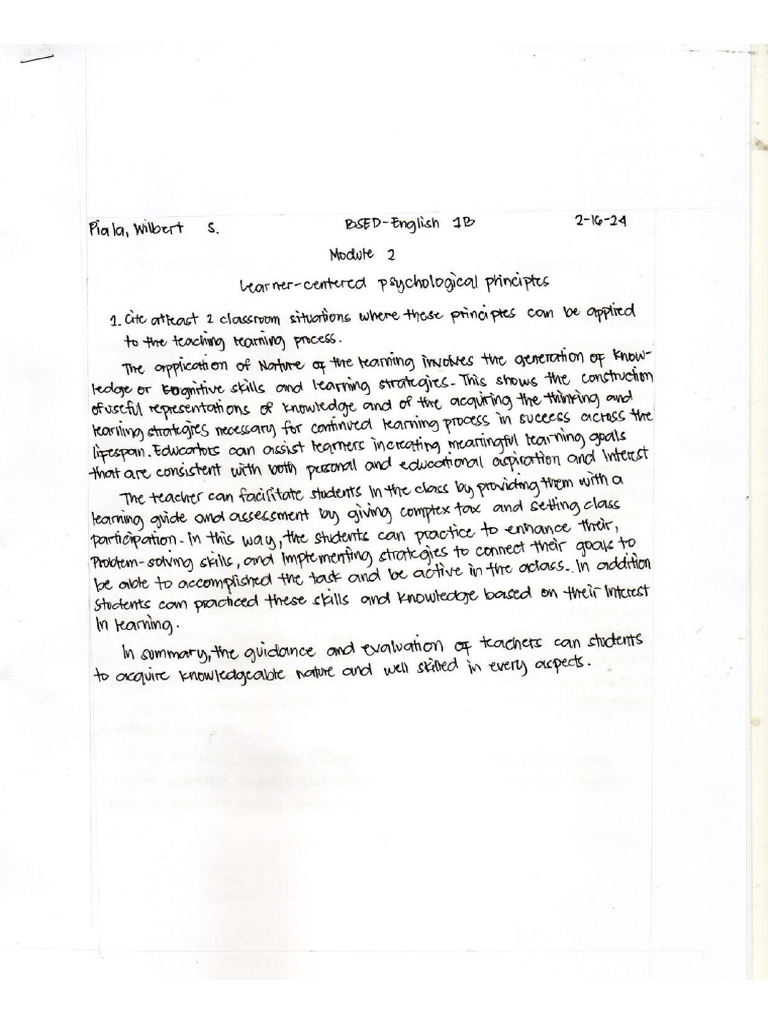 Piala, Wilbert S. BSED-English 1B 2-16-24
Module 2
Learner-centered psychological principles
1. Cite atleast 2 classroom situations where these principles can be applied
to the teaching learning process.
The application of Nature of the learning involves the generation of know-
ledge or cognitive skills and learning strategies. This shows the construction
of useful representations of knowledge and of the acquiring the thinking and
learning strategies necessary for continued learning process in success across the
lifespan. Educators can assist learners increating meaningful learning goals
that are consistent with both personal and educational aspiration and interest
The teacher can facilitate students in the class by providing them with a
learning guide and assessment by giving complex tax and setting class
participation. In this way, the students can practice to enhance their,
Problem-solving skills, and implementing strategies to connect their goals to
be able to accomplished the task and be active in the aclass. In addition
students can practiced these skills and knowledge based on their interest
in learning.
In summary, the guidance and evaluation of teachers can students
to acquire knowledgeable nature and well skilled in every aspects.